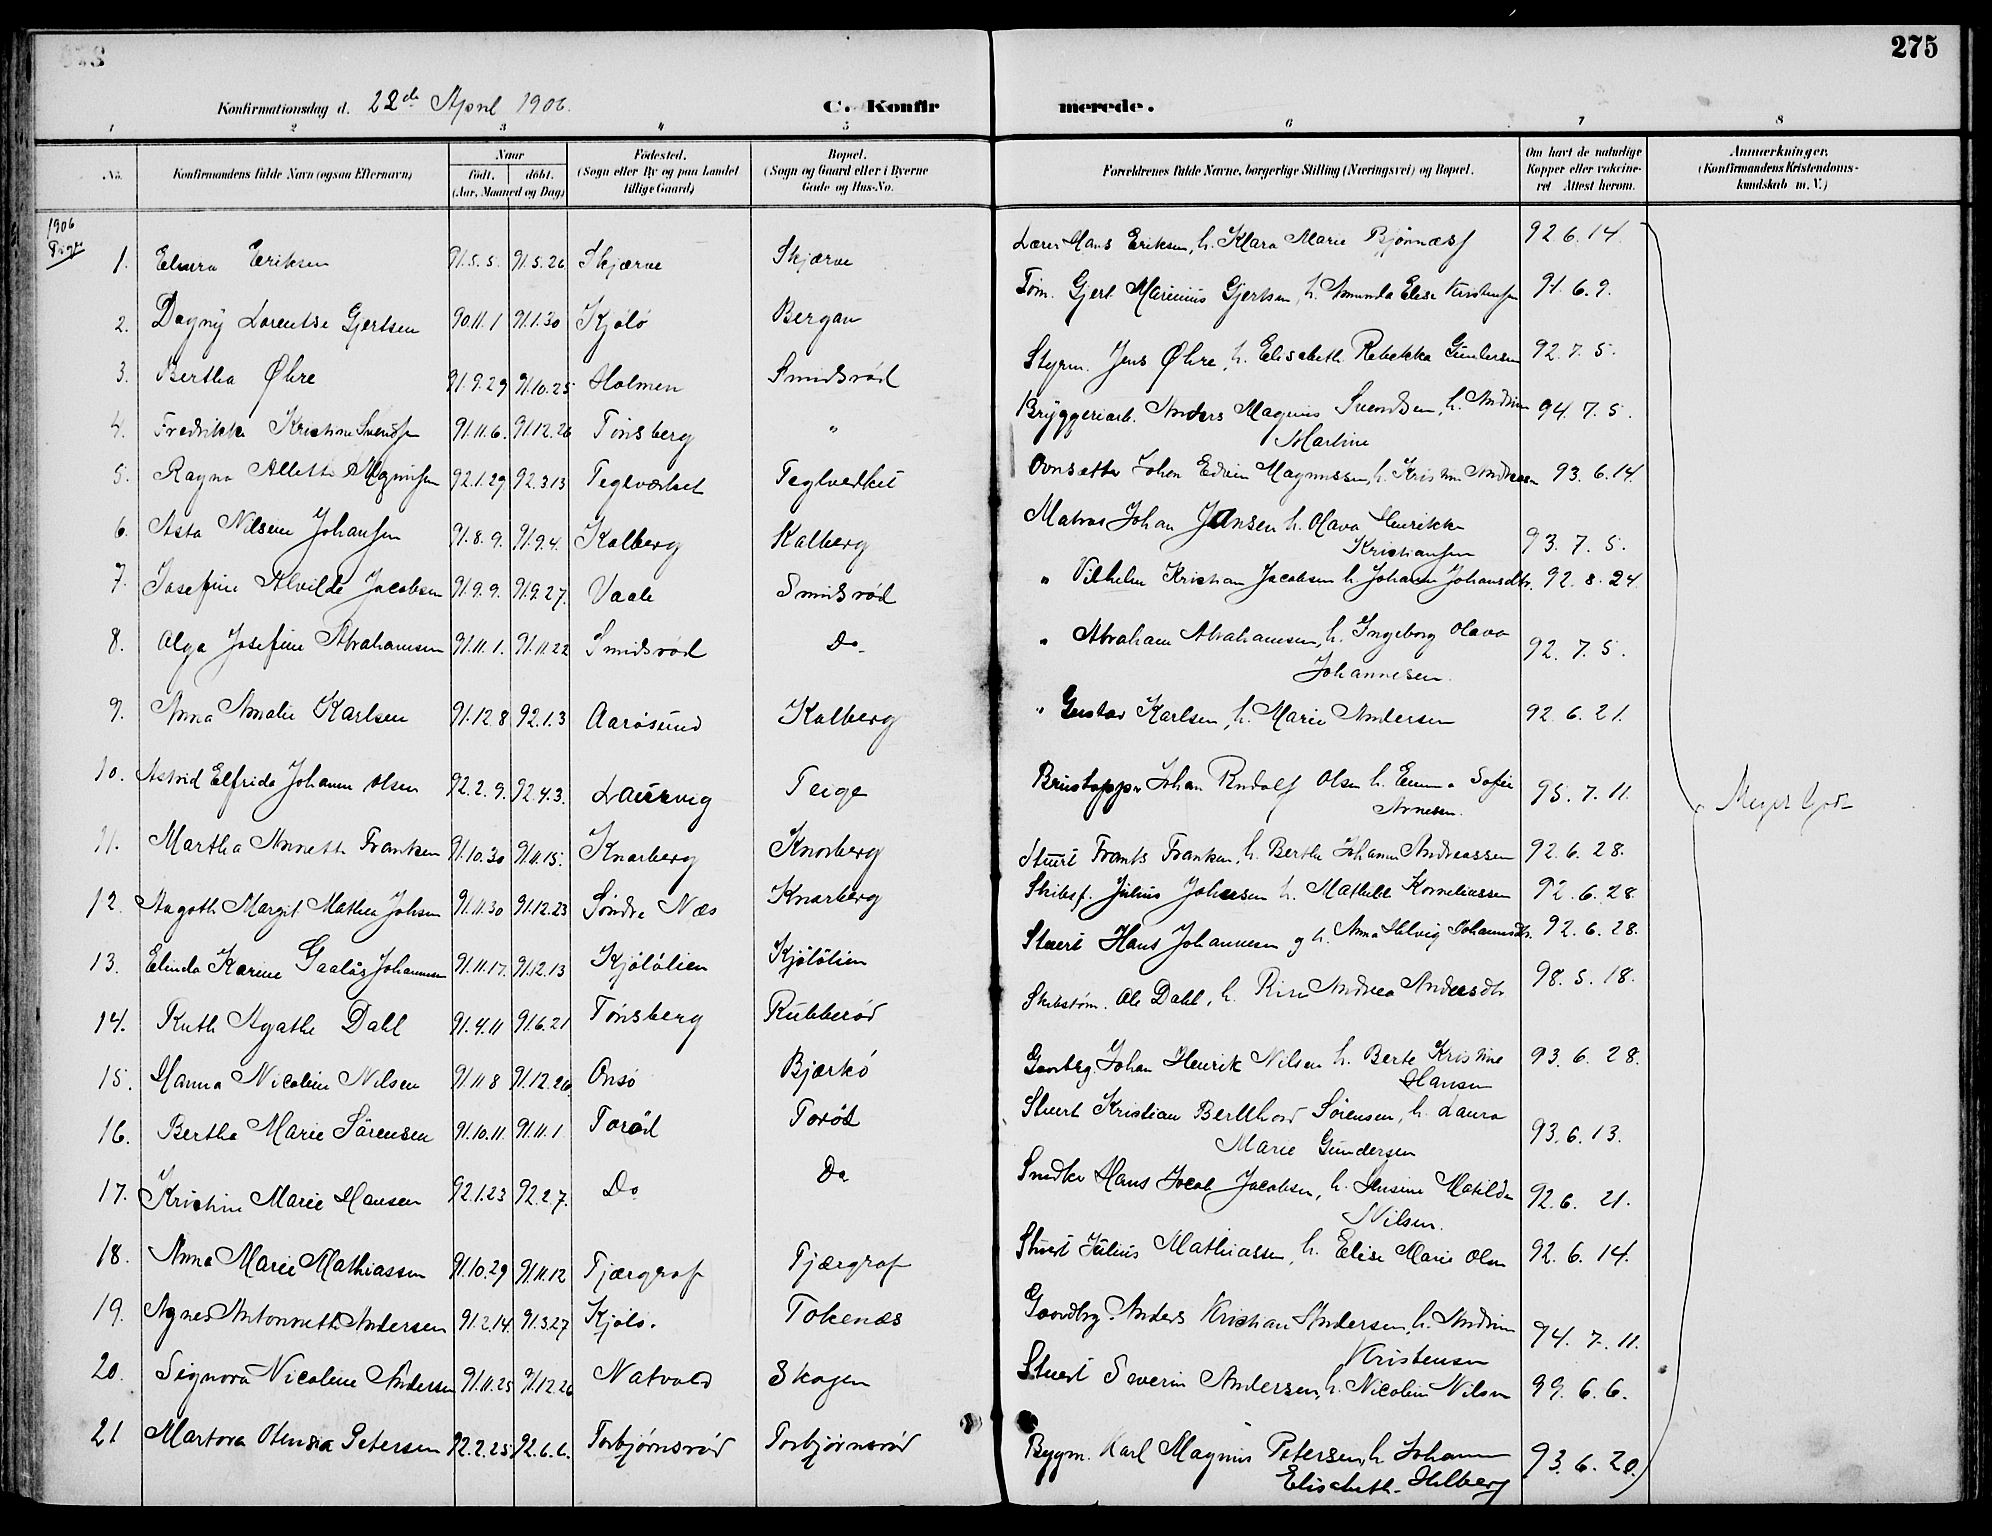 275
Konfirmationsdag d. 22de April 1906. C. Konfirmerede.
1 2 3 4 5 6 7 8
No. Konfirmandens fulde Navn (ogsaa Efternavn) Naar født. døbt. (Aar, Maaned og Dag) Fødested. (Sogn eller By og paa Landet tillige Gaard) Bopæl. (Sogn og Gaard eller i Byerne Gade og Hus-No. Forældrenes fulde Navne, borgerlige Stilling (Næringsvei) og Bopæl. Om havt de naturlige Kopper eller vakcineret Attest herom. Anmærkninger, (Konfirmandens Kristendomskundskab m. V.)
1906
Piger
1. Elvira Eriksen 91.5.5. 91.5.26 Skjærve Skjærve Lærer Hans Eriksen, h. Klara Marie Bjønnæss 92.6.14.
2. Dagny Lorentse Gjertsen 90.11.1 91.1.30 Kjölö Bergan Töm. Gjert Marinius Gjertsen, h. Amunda Elise Kristensen 91.6.9.
3. Bertha Øhre 91.9.29 91.10.25 Holmen Smidsröd Styrm. Jens Øhre, h. Elisabeth Rebekka Gundersen 92.7.5.
4. Fredrikke Kristine Svendsen 91.11.6. 91.12.26 Tönsberg " Bryggeriarb. Anders Magnus Svendsen, h. Andrine
Martine 94.7.5.
5. Ragna Alette Magnusen 92.1.29 92.3.13 Teglværket Teglverket Ovnsætter Johan Edvin Magnussen, h. Kristine Andreasen 93.6.14.
6. Asta Nilsine Johansen 91.8.9. 91.9.4. Kalberg Kalberg Matros Johan Jansen h. Olava Henrikke
Kristiansen 93.7.5.
7. Josefine Alvilde Jacobsen 91.9.9. 91.9.27. Vaale Smidsröd " Vilhelm Kristian Jacobsen h. Johanne Johansdtr. 92.8.24.
8. Olga Josefine Abrahamsen 91.11.1. 91.11.22 Smidsröd Do. " Abraham Abrahamsen, h. Ingeborg Olava
Johannesen. 92.7.5.
9. Anna Amalie Karlsen 91.12.8 92.1.3 Aarösund Kalberg " Gustav Karlsen, h. Marie Andersen 92.6.21.
10. Astrid Elfrida Johanne Olsen 92.2.9. 92.4.3. Laurvig Teige Johan Rudolf Olsen h. Emma Sofie
Arnesen. 95.7.11.
11. Martha Annette Frantzen 91.10.30 91.11.15. Knarberg Knarberg Stuert Frants Frantzen, h. Berthe Johanne Andreassen 92.6.28.
12. Aagoth Margit Mathea Johsen 91.11.30 91.12.23 Søndre Næs Knarberg Skibsf. Julius Johnsen h. Mathilde Korneliussen 92.6.28.
13. Elinda Karine Johannesen 91.11.17. 91.12.13 Kjölölien Kjölölien Stuert Hans Johannesen og h. Anna Helvig Johannsdtr. 92.6.28.
14. Ruth Agathe Dahl 91.4.11 91.6.21 Tönsberg Rubberöd Skibstøm. Ole Dahl, h. Andrea Andersdtr 98.5.18.
15. Hanna Nicoline Nilsen 91.11.8 91.12.26 Onsö Bjærkö Johan Henrik Nilsen h. Berte Kristine
Hansen 93.6.28.
16. Berthe Marie Sørensen 91.10.11. 91.11.1 Toröd Toröd Stuert Kristian Sørensen, h. Laura
Marie Gundersen 93.6.13.
17. Kristine Marie Hansen 92.1.23 92.2.7. Do Do Snedker Hans Jacob Jacobsen, h. Matilde
Nilsen. 92.6.21.
18. Anna Marie Mathiassen 91.10.29 91.11.12 Fjærgraf Fjærgraf Stuert Julius Mathiassen, h. Elise Marie Olsen 92.6.14.
19. Agnes Antonnette Andersen 91.2.14. 91.3.27 Kjölö. Tokenæs Gaardbrg. Anders Kristian Andersen, h. Andrine
Kristensen 94.7.11.
20. Signora Nicoline Andersen 91.11.25 91.12.26 Natvald Skogen Stuert Severin Andersen, h. Nicoline Nilsen 99.6.6.
21 Martora Petersen 92.2.25 92.6.6. Torbjørnsröd Torbjørnsröd Bygm. Karl Magnus Petersen, h. Johanne
Elisabeth Hilberg 93.6.20.
Meget Godt